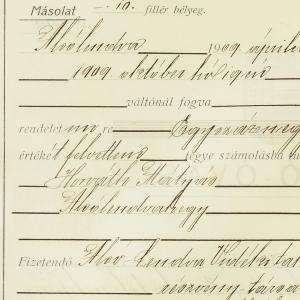 Másolat —. 10. fillér bélyeg.
Alsólendva 1909 április
1909 október hó
váltónál fogva
rendelet re Egyszáznegy
értékét tegye számolásba ta
Horváth Mátyás
Alsólendvahegy
Fizetendő Alsó-Lendva Vidéki tak
részvény-társa